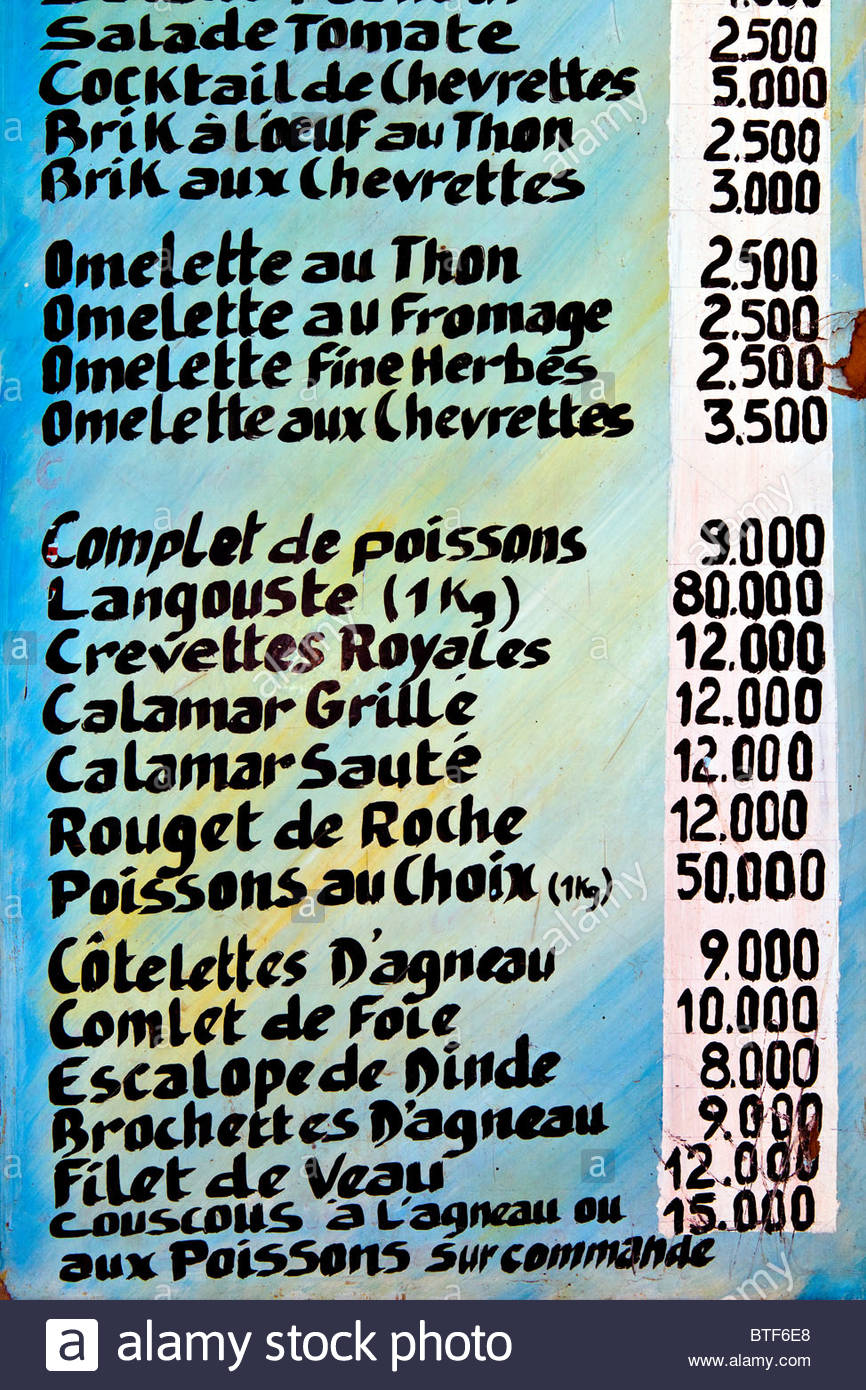 Salade Tomate 2.500
Cocktail de Chevrettes 5.000
Brik à L'oeuf au Thon 2.500
Brik aux Chevrettes 3.000
Omelette au Thon 2.500
Omelette au Fromage 2.500
Omelette Fine Herbes 2.500
Omelette aux Chevrettes 3.500
Complet de poissons 9.000
Langouste (1Kg) 80.000
Crevettes Royales 12.000
Calamar Grillé 12.000
Calamar Sauté 12.000
Rouget de Roche 12.000
Poissons au Choix (1Kg) 50.000
Côtelettes D'agneau 9.000
Comlet de Foie 10.000
Escalope de Dinde 8.000
Brochettes D'agneau 9.000
Filet de Veau 12.000
Couscous à L'agneau ou 15.000
aux Poissons sur commande
a alamy stock photo
BTF6E8
www.alamy.com